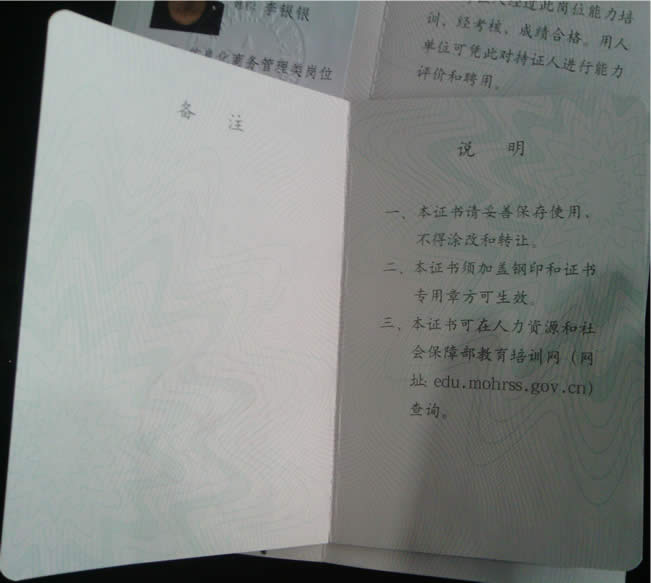 李银银
息化商务管理类岗位
经过此岗位能力培
训、经考核，成绩合格。用人
单位可凭此对持证人进行能力
评价和聘用。
备 注
说 明
一、本证书请妥善保存使用，
不得涂改和转让。
二、本证书须加盖钢印和证书
专用章方可生效。
三、本证书可在人力资源和社
会保障部教育培训网（网
址: edu.mohrss.gov.cn)
查询。